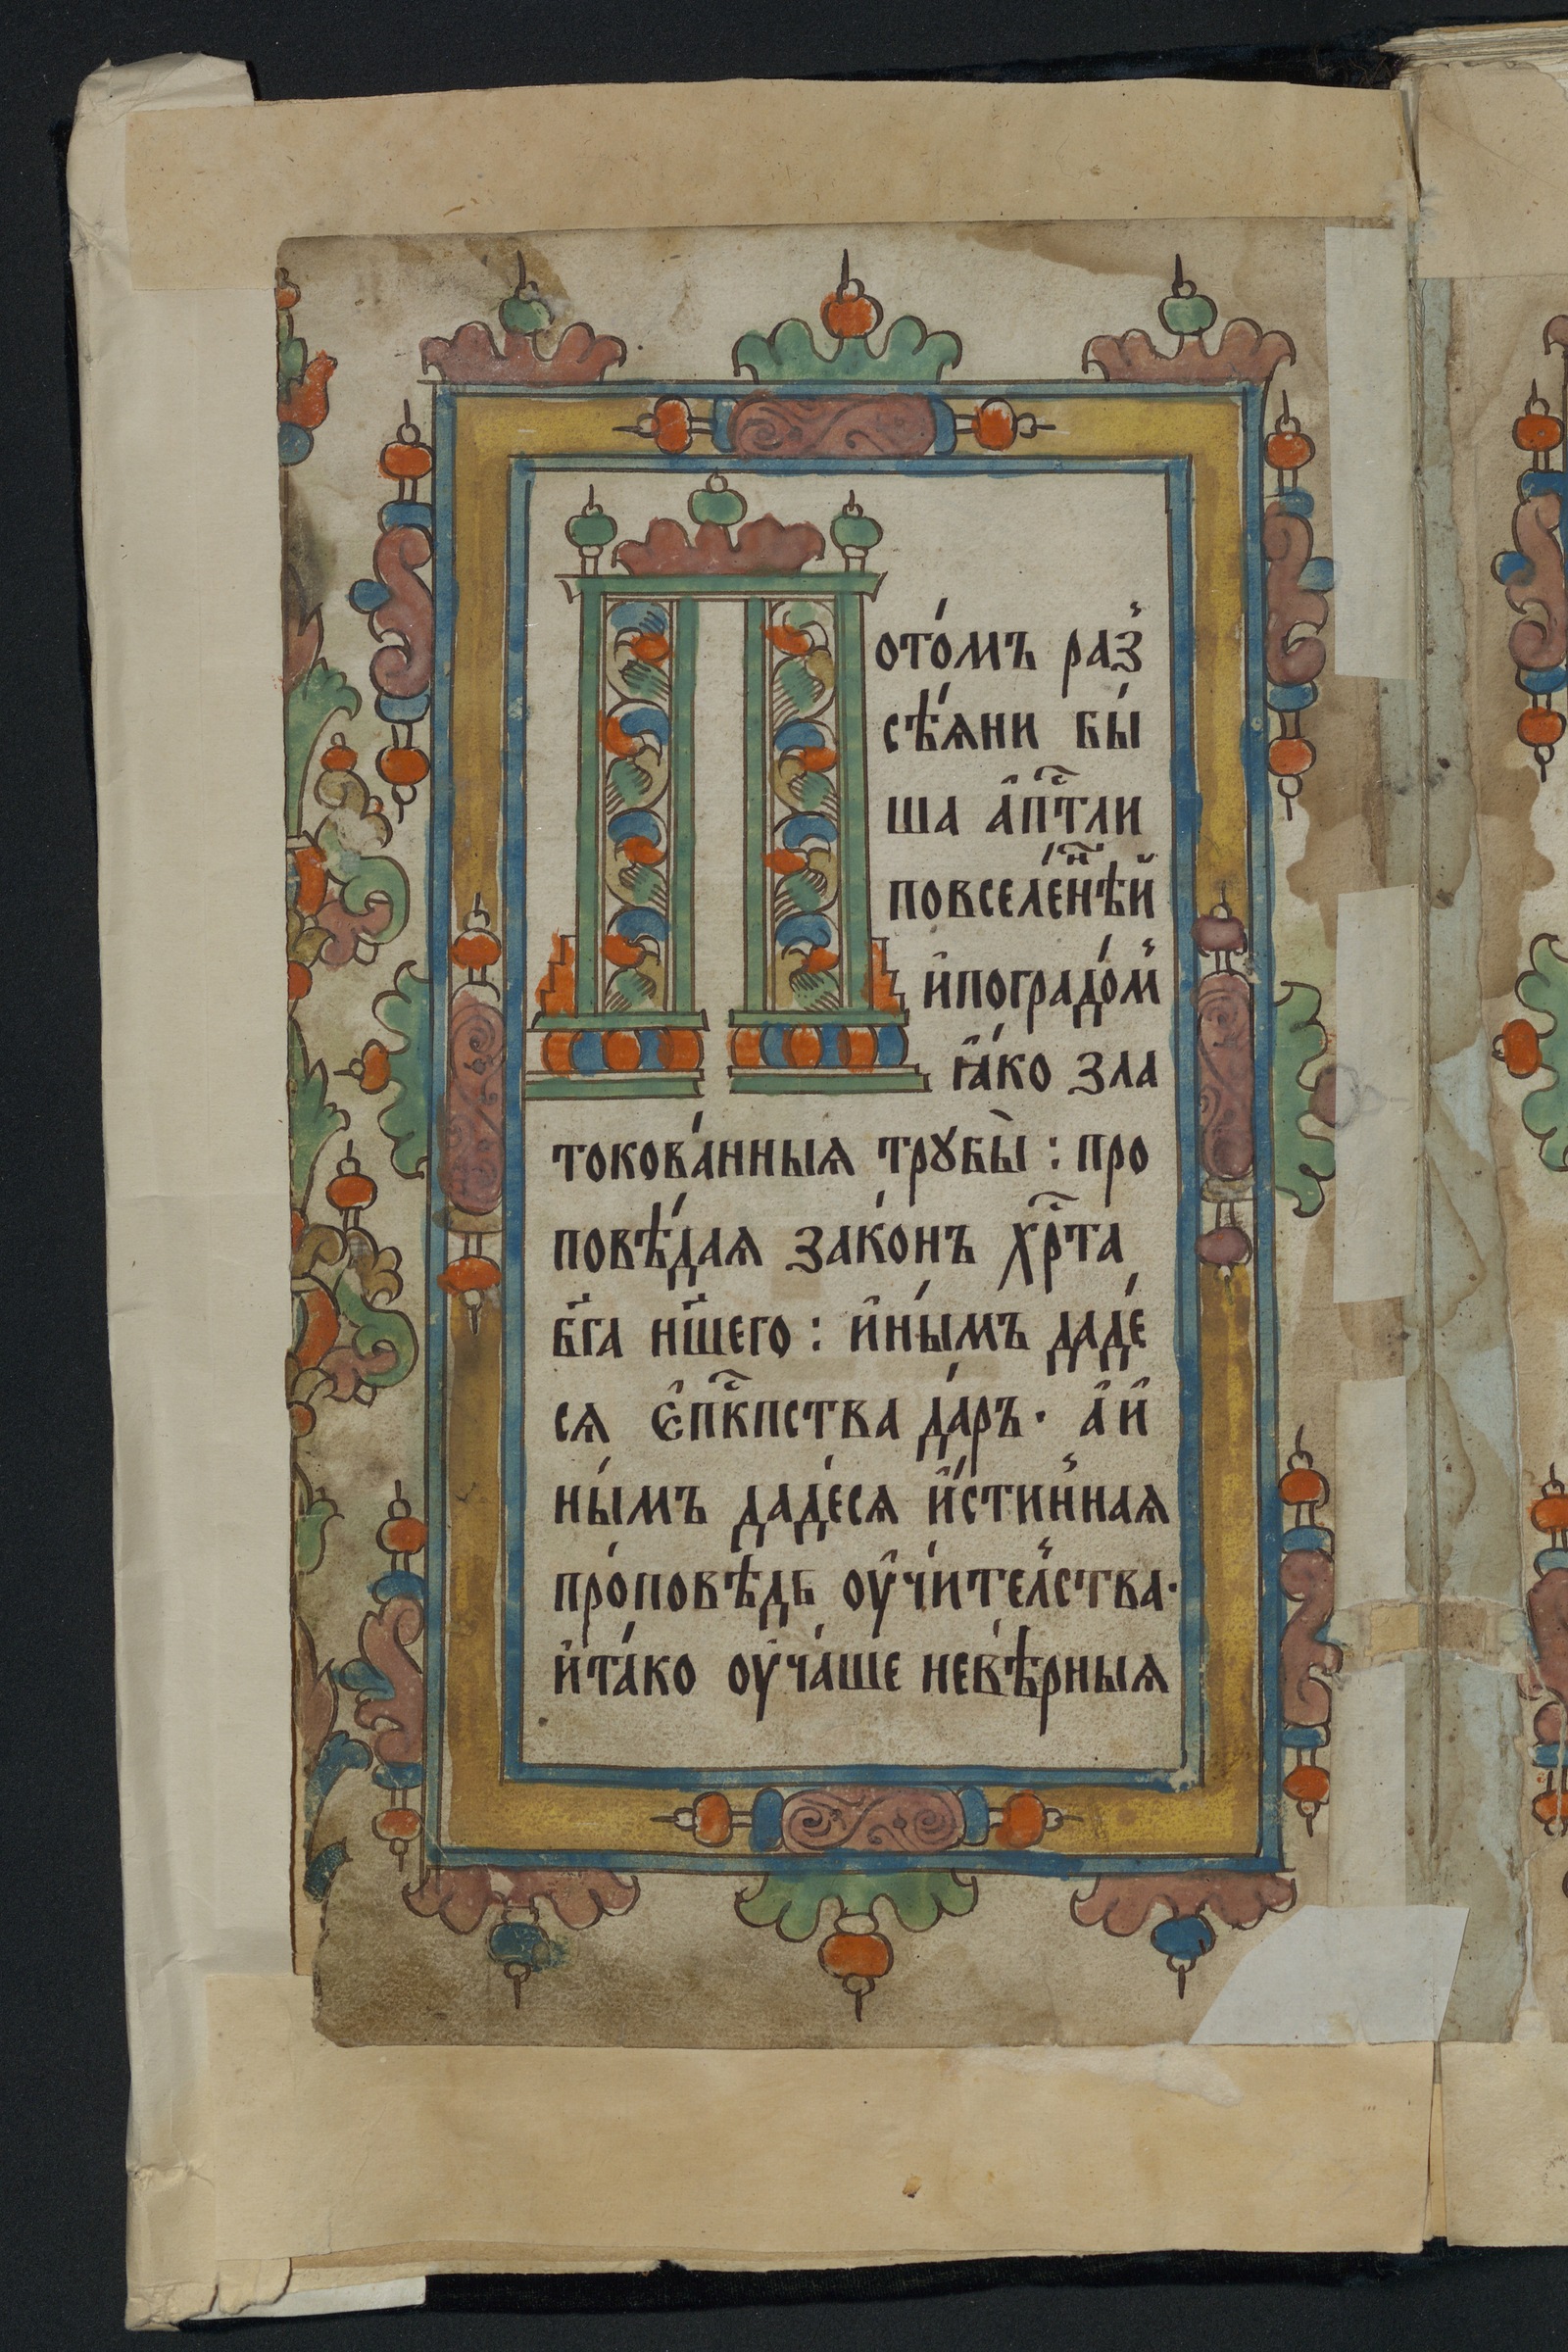 Пото́мъ раз̾
сѣ́ѧни бы́
ша а҆пⷭ҇тли
повселе́нⷩ҇ѣй
и҆поградо́м̾
ꙗ҆́ко зла
токова́нныѧ трꙋбы̀ : про
повѣ́даѧ зако́нъ хрⷭ҇та
бг҃а нш҃его : и҆ны́мъ даде́
сѧ є҆пⷭ҇кпства да́ръ · а҆ и҆
ны́мъ даде́сѧ и҆́стин̾наѧ
про́повѣдь оу҆чи́тел̾ства ·
и҆та́ко оу҆ча́ше невѣ́рныѧ